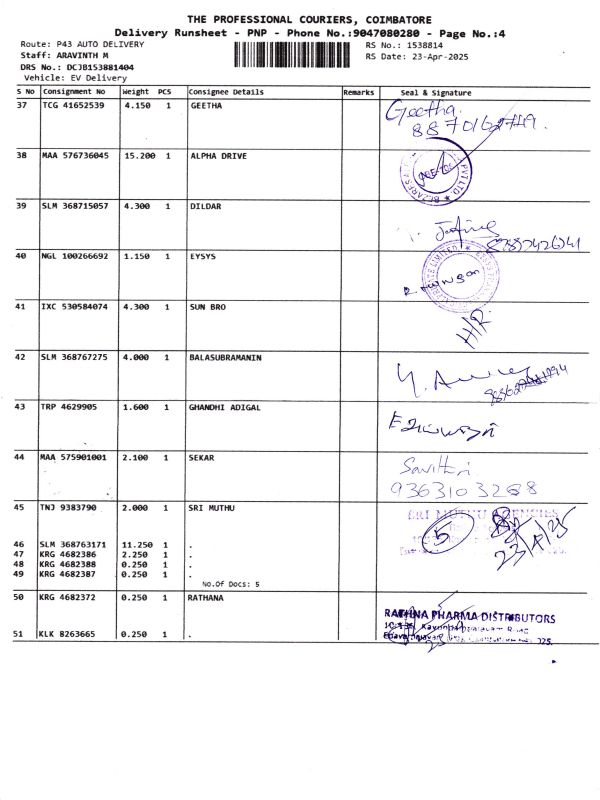 THE PROFESSIONAL COURIERS, COIMBATORE
Delivery Runsheet - PNP - Phone No.:9047080280 - Page No.:4
Route: P43 AUTO DELIVERY RS No.: 1538814
Staff: ARAVINTH M RS Date: 23-Apr-2025
DRS No.: DCJB153881404
Vehicle: EV Delivery
S No Consignment No Weight PCS Consignee Details Remarks Seal & Signature
37 TCG 41652539 4.150 1 GEETHA Geetha.
38 MAA 576736045 15.200 1 ALPHA DRIVE
39 SLM 368715057 4.300 1 DILDAR
40 NGL 100266692 1.150 1 EYSYS
41 IXC 530584074 4.300 1 SUN BRO H/R
42 SLM 368767275 4.000 1 BALASUBRAMANIN
43 TRP 4629905 1.600 1 GHANDHI ADIGAL
44 MAA 575901001 2.100 1 SEKAR Savithri
9363103268
45 TNJ 9383790 2.000 1 SRI MUTHU SRI MUTHU AGENCIES
5
23/4/25
46 SLM 368763171 11.250 1 .
47 KRG 4682386 2.250 1 .
48 KRG 4682388 0.250 1 .
49 KRG 4682387 0.250 1 .
No.Of Docs: 5
50 KRG 4682372 0.250 1 RATHANA RATHNA PHARMA DISTRIBUTORS
51 KLK B263665 0.250 1 .